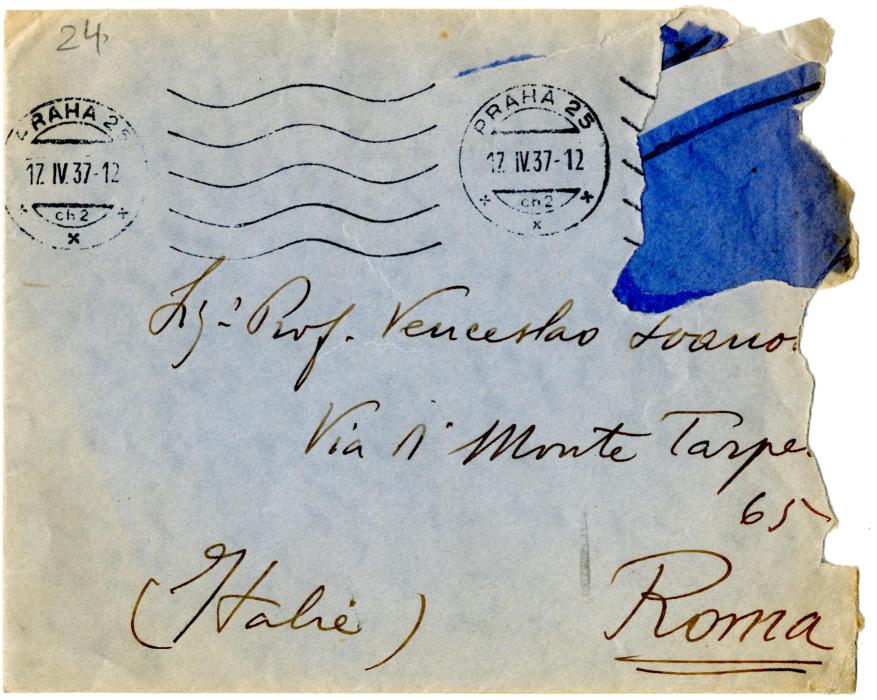 24.
PRAHA 25
17. IV. 37-12
ch 2
PRAHA 25
17. IV. 37-12
ch 2
Sig.r Prof. Venceslao Ivano
Via di Monte Tarpe
65
(Italie)
Roma